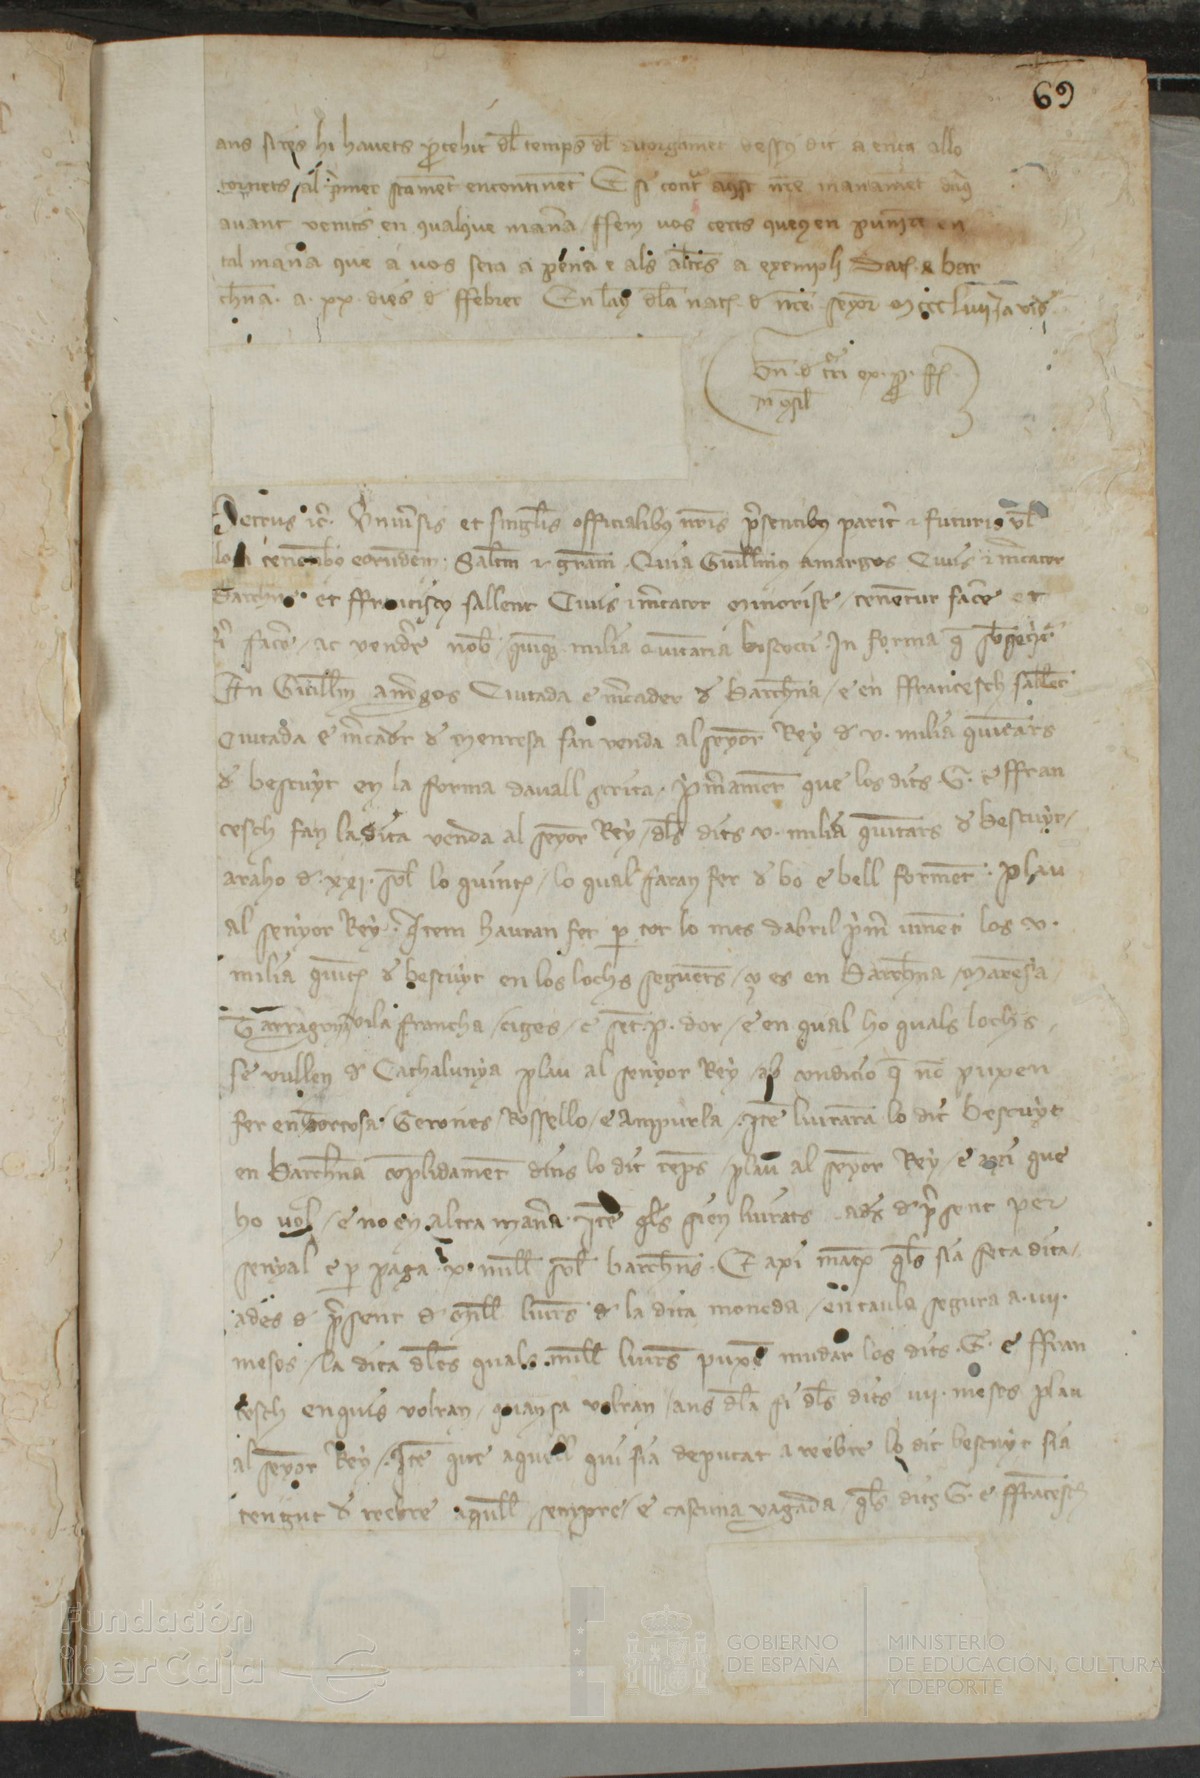 69
ans si res hi havets p̄cehit dl̄ temps dl̄ atorgament dessus dit a ença allo
tornets al p̄mer stament encontinet E si cont̄ aq̄st nr̄e manament
avant venits en qualque manā / ffem vos certs queus en punirem en
tal manā que a vos sera a pena e als alt̄s a exempli Dat̄ a Bar
chn̄a . a . xx . dies d ffebrer En lay dl̄a nat̄ d nr̄e seyor Mccclviij
in q̄sil
Petrus ic̄ . Univ̄sis et singul̄is officialibȝ nr̄is p̄sentibȝ parit̄ & futuris vl̄
loca tenentibȝ eorundem . Salt̄m & gr̄am . Quia Guill̄mo amargos Civis & m̄cator
Barchn̄e et ffrancisco sallent Civis & m̄cator Minorise / tenentur facē et
facē / ac vendr̄e nob̄ . quinqȝ milia Quintaria biscocti . In forma q̄ sb̄seq̄it̄
En Guill̄m am̄gos Ciutada e m̄cader d Barchn̄a / e en ffrancesch sall̄ent
Ciutada e m̄cadr d Menresa fan venda al seyor Rey d . v . milia quintars
d bescuyt en la forma davall scrita . p̄merament que los dits . G . e ffran
cesch fan la dita venda al seyor Rey / dl̄s dits v . milia quintars d bescuyt /
araho d . xxi . sol̄ lo quint̄ / lo qual faran fer d bo e bell forment . plau
al senyor Rey . Item hauran fet p̱ tot lo mes dabril p̄m̄ vinent los v .
milia quint̄ d bescuyt en los lochs seguents / ço es en Barchn̄a / Manresa /
Tarragona vila francha / ciges / e sent . p . dor / e en qual ho quals lochs
se vullen d Cathalunya plau al senyor Rey / ab condicio q̄ no puxen
fer en Tortosa . Gerones / Rossello / e Ampurda / . Itē liuraran lo dit bescuyt
en Barchn̄a complidament dins lo dit temps / plau al seyor Rey / e axi que
ho vol / e no en altra manā . Itē q̄ls sien liurats ades d p̄sent per
senyal e p̱ paga . x . mill̄ sol̄ barchn̄s . Et axi mat̄x q̄ls sia feta dita /
ades d p̄sent d Mill̄ liur̄s d la dita moneda / en taula segura a . iiij .
meses / la dita dl̄es quals mill̄ liur̄s puxen mudar los dits . G . e ffran
cesch enquis volran / quansa volran / ans dl̄a fi dl̄s dits iiij . meses plau
al seyor Rey / . Itē que aquell qui sia deputat a reebre lo dit bescuyt sia
tengut d reebre aquell / sempre / e cascuna vagada / q̄ls dits G . e ffrancesch
Fundación
iberCaja
GOBIERNO
DE ESPAÑA
MINISTERIO
DE EDUCACIÓN, CULTURA
Y DEPORTE